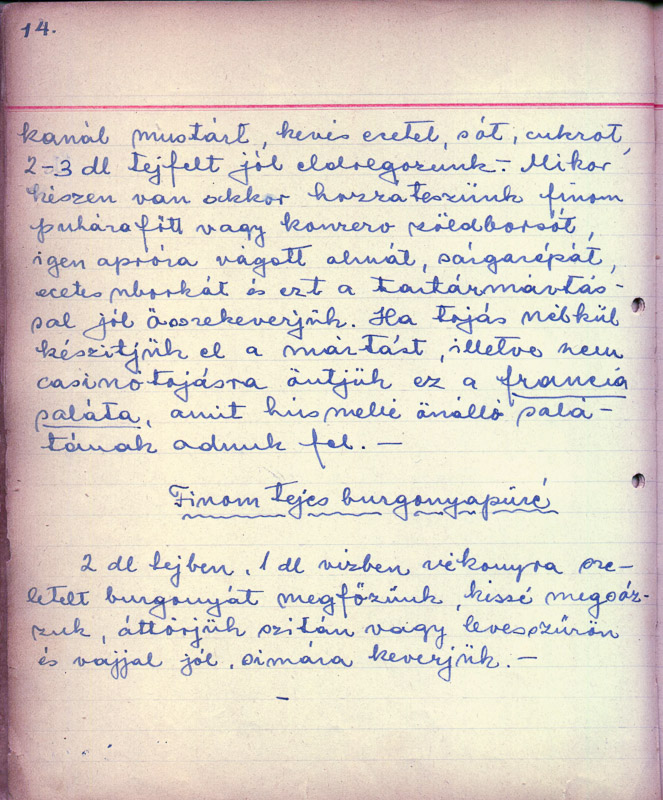 14.
kanál mustárt, kevés ecetel, sót, cukrot,
2-3 dl tejfelt jól eldolgozunk. - Mikor
készen van akkor hozzáteszünk finom
puhára főtt vagy konzerv zöldborsót,
igen apróra vágott almát, sárgarépát,
ecetes uborkát és ezt a tartármártás-
sal jól összekeverjük. Ha tojás nélkül
készitjük el a mártást, illetve nem
casinotojásra öntjük ez a francia
saláta, amit hús mellé önálló salá-
tának adunk fel. -
Finom tejes burgonyapüré
2 dl tejben, 1 dl vizben vékonyra sze-
letelt burgonyát megfőzünk, kissé megsóz-
zuk, áttörjük szitán vagy levesszűrőn
és vajjal jól, simára keverjük. -
-